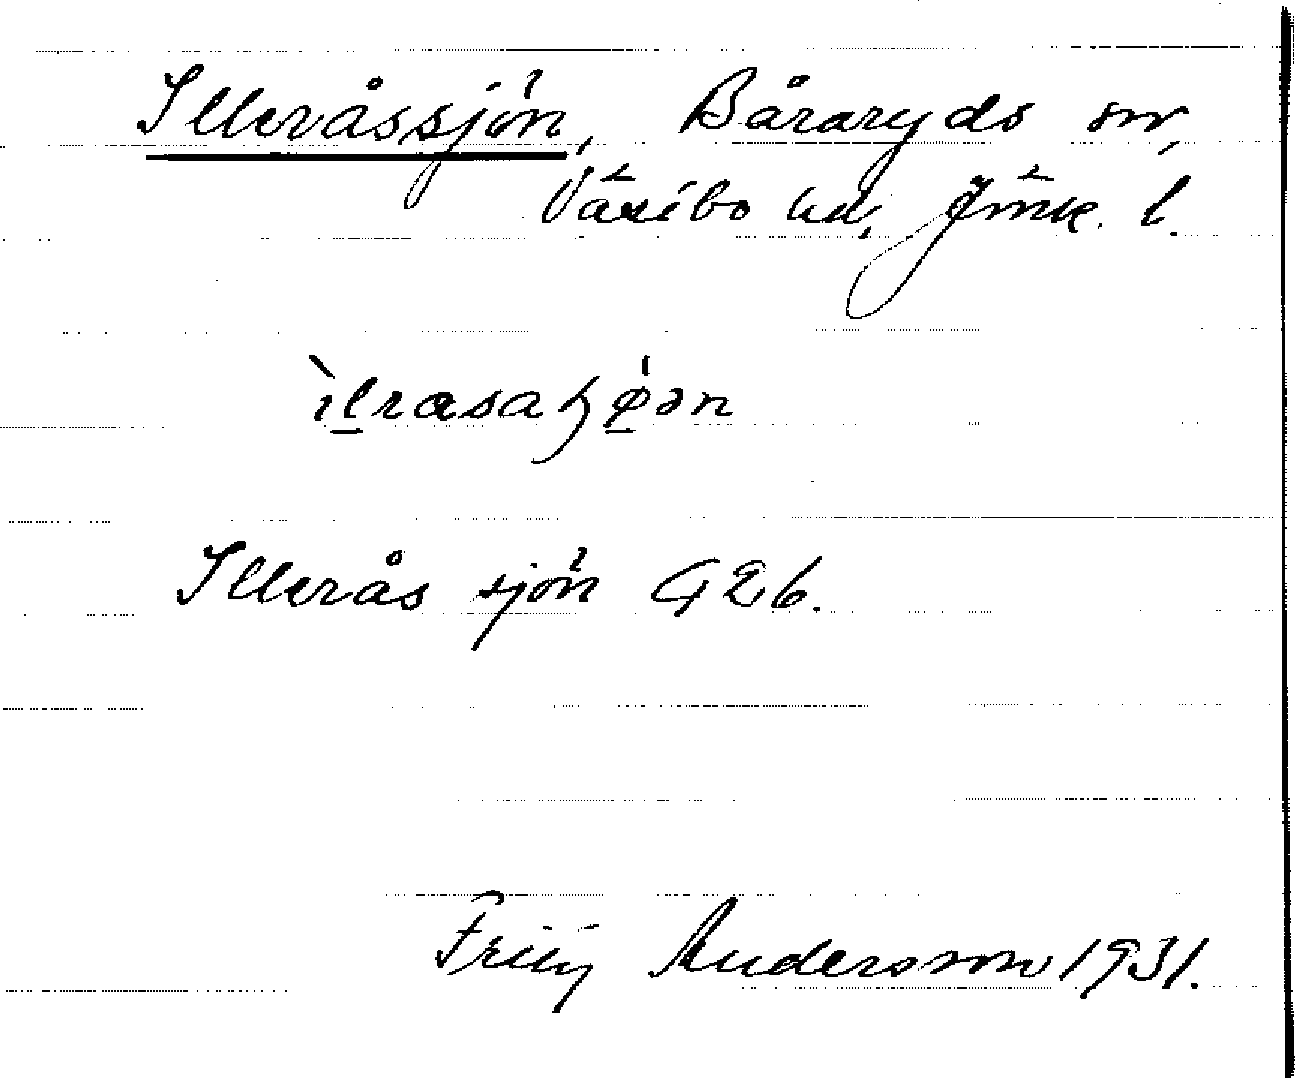 Illeråssjön, Båraryds sn,
Västbo hd, Jönk. l.
ìlrasaɧø̍ən
Illerås sjön G2b.
Andersson 1931.